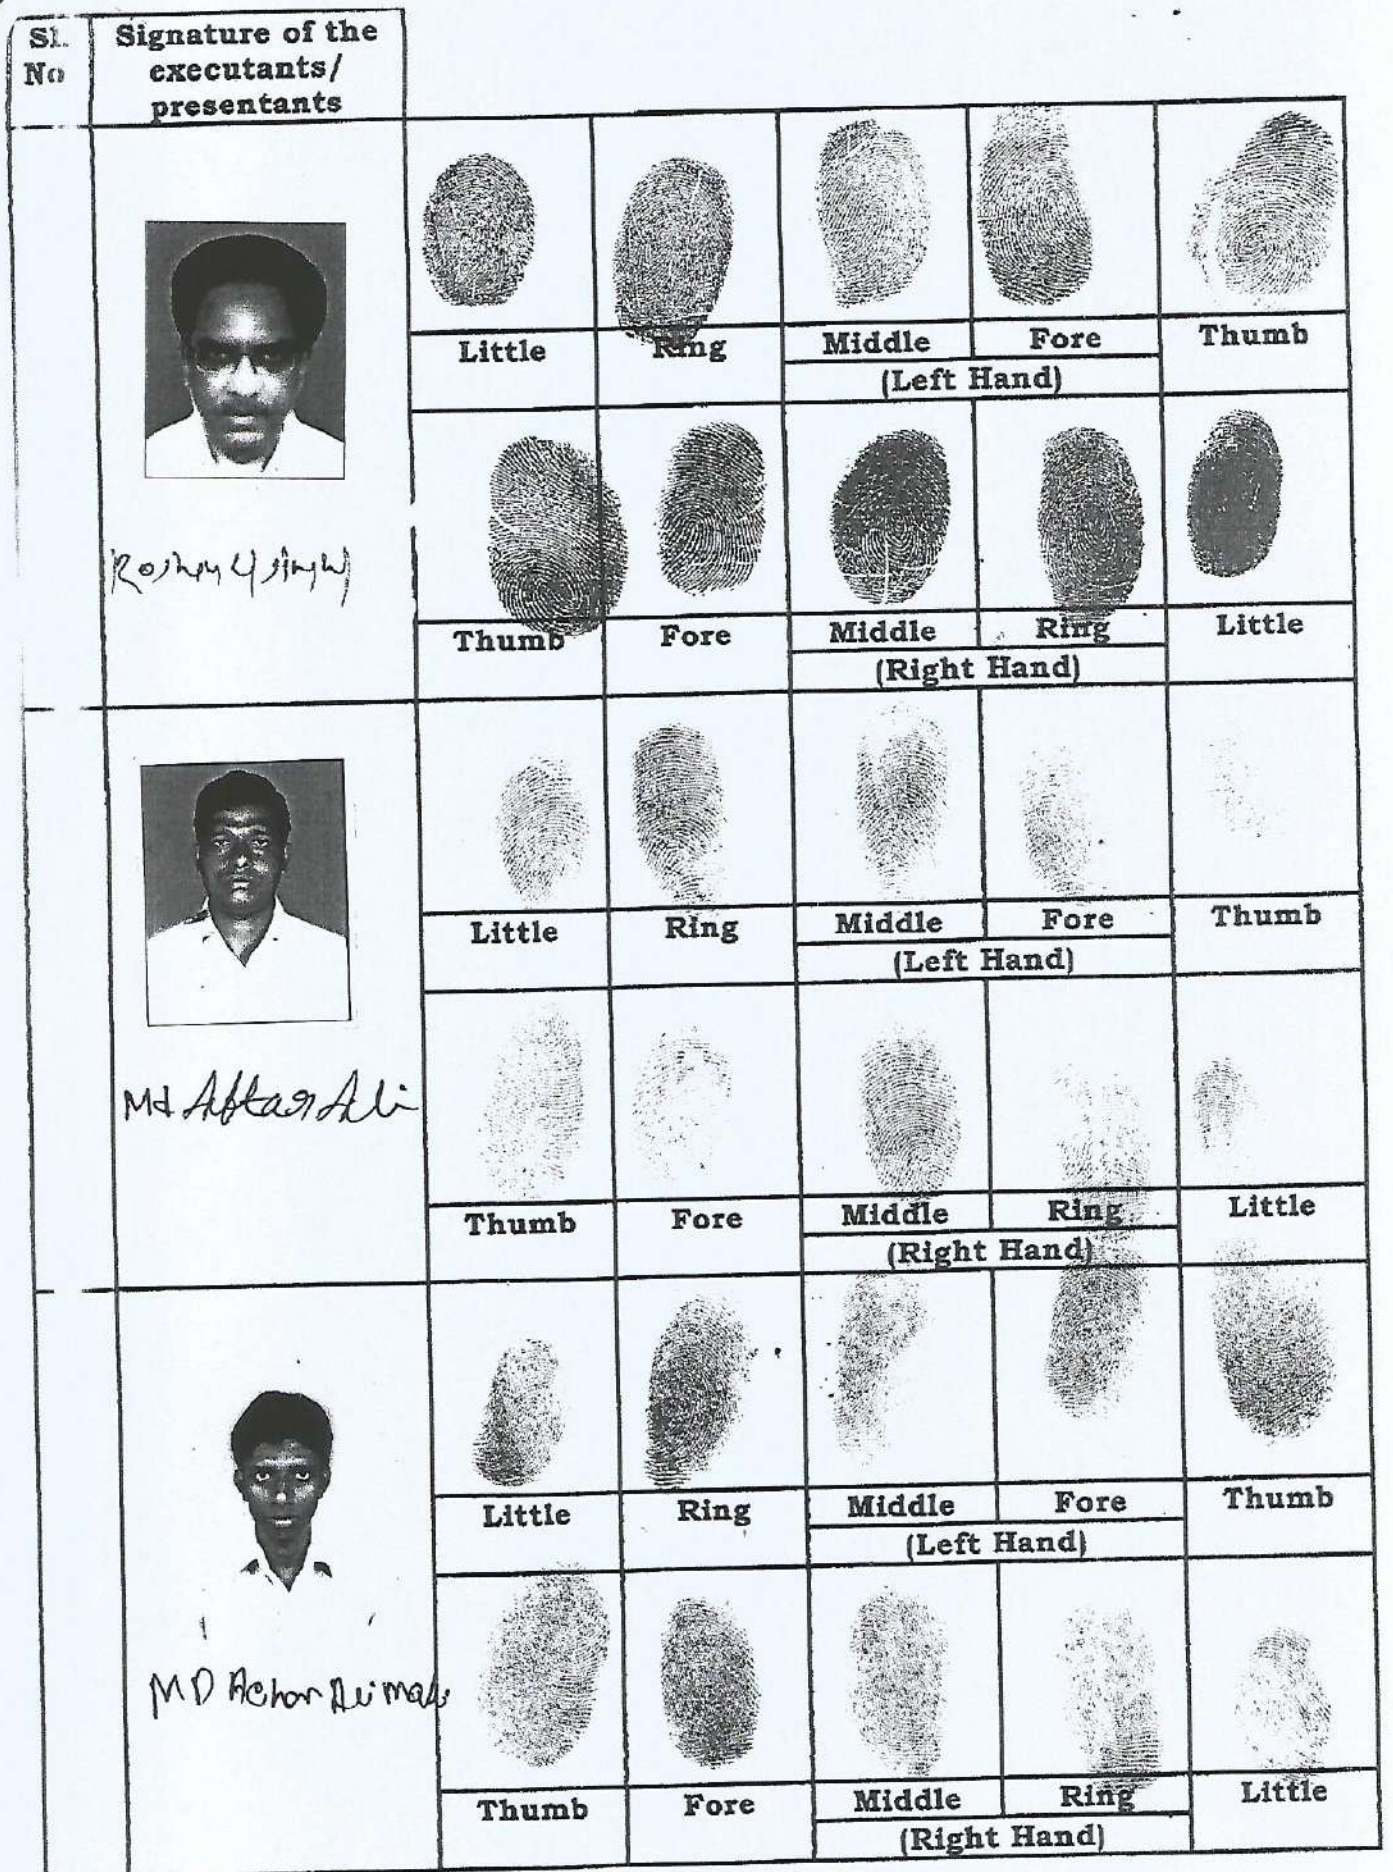 Sl. No
Signature of the
executants/
presentants
Little Ring Middle Fore Thumb
(Left Hand)
Thumb Fore Middle Ring Little
(Right Hand)
Little Ring Middle Fore Thumb
(Left Hand)
Md Aftar Ali
Thumb Fore Middle Ring Little
(Right Hand)
Little Ring Middle Fore Thumb
(Left Hand)
MD
Thumb Fore Middle Ring Little
(Right Hand)